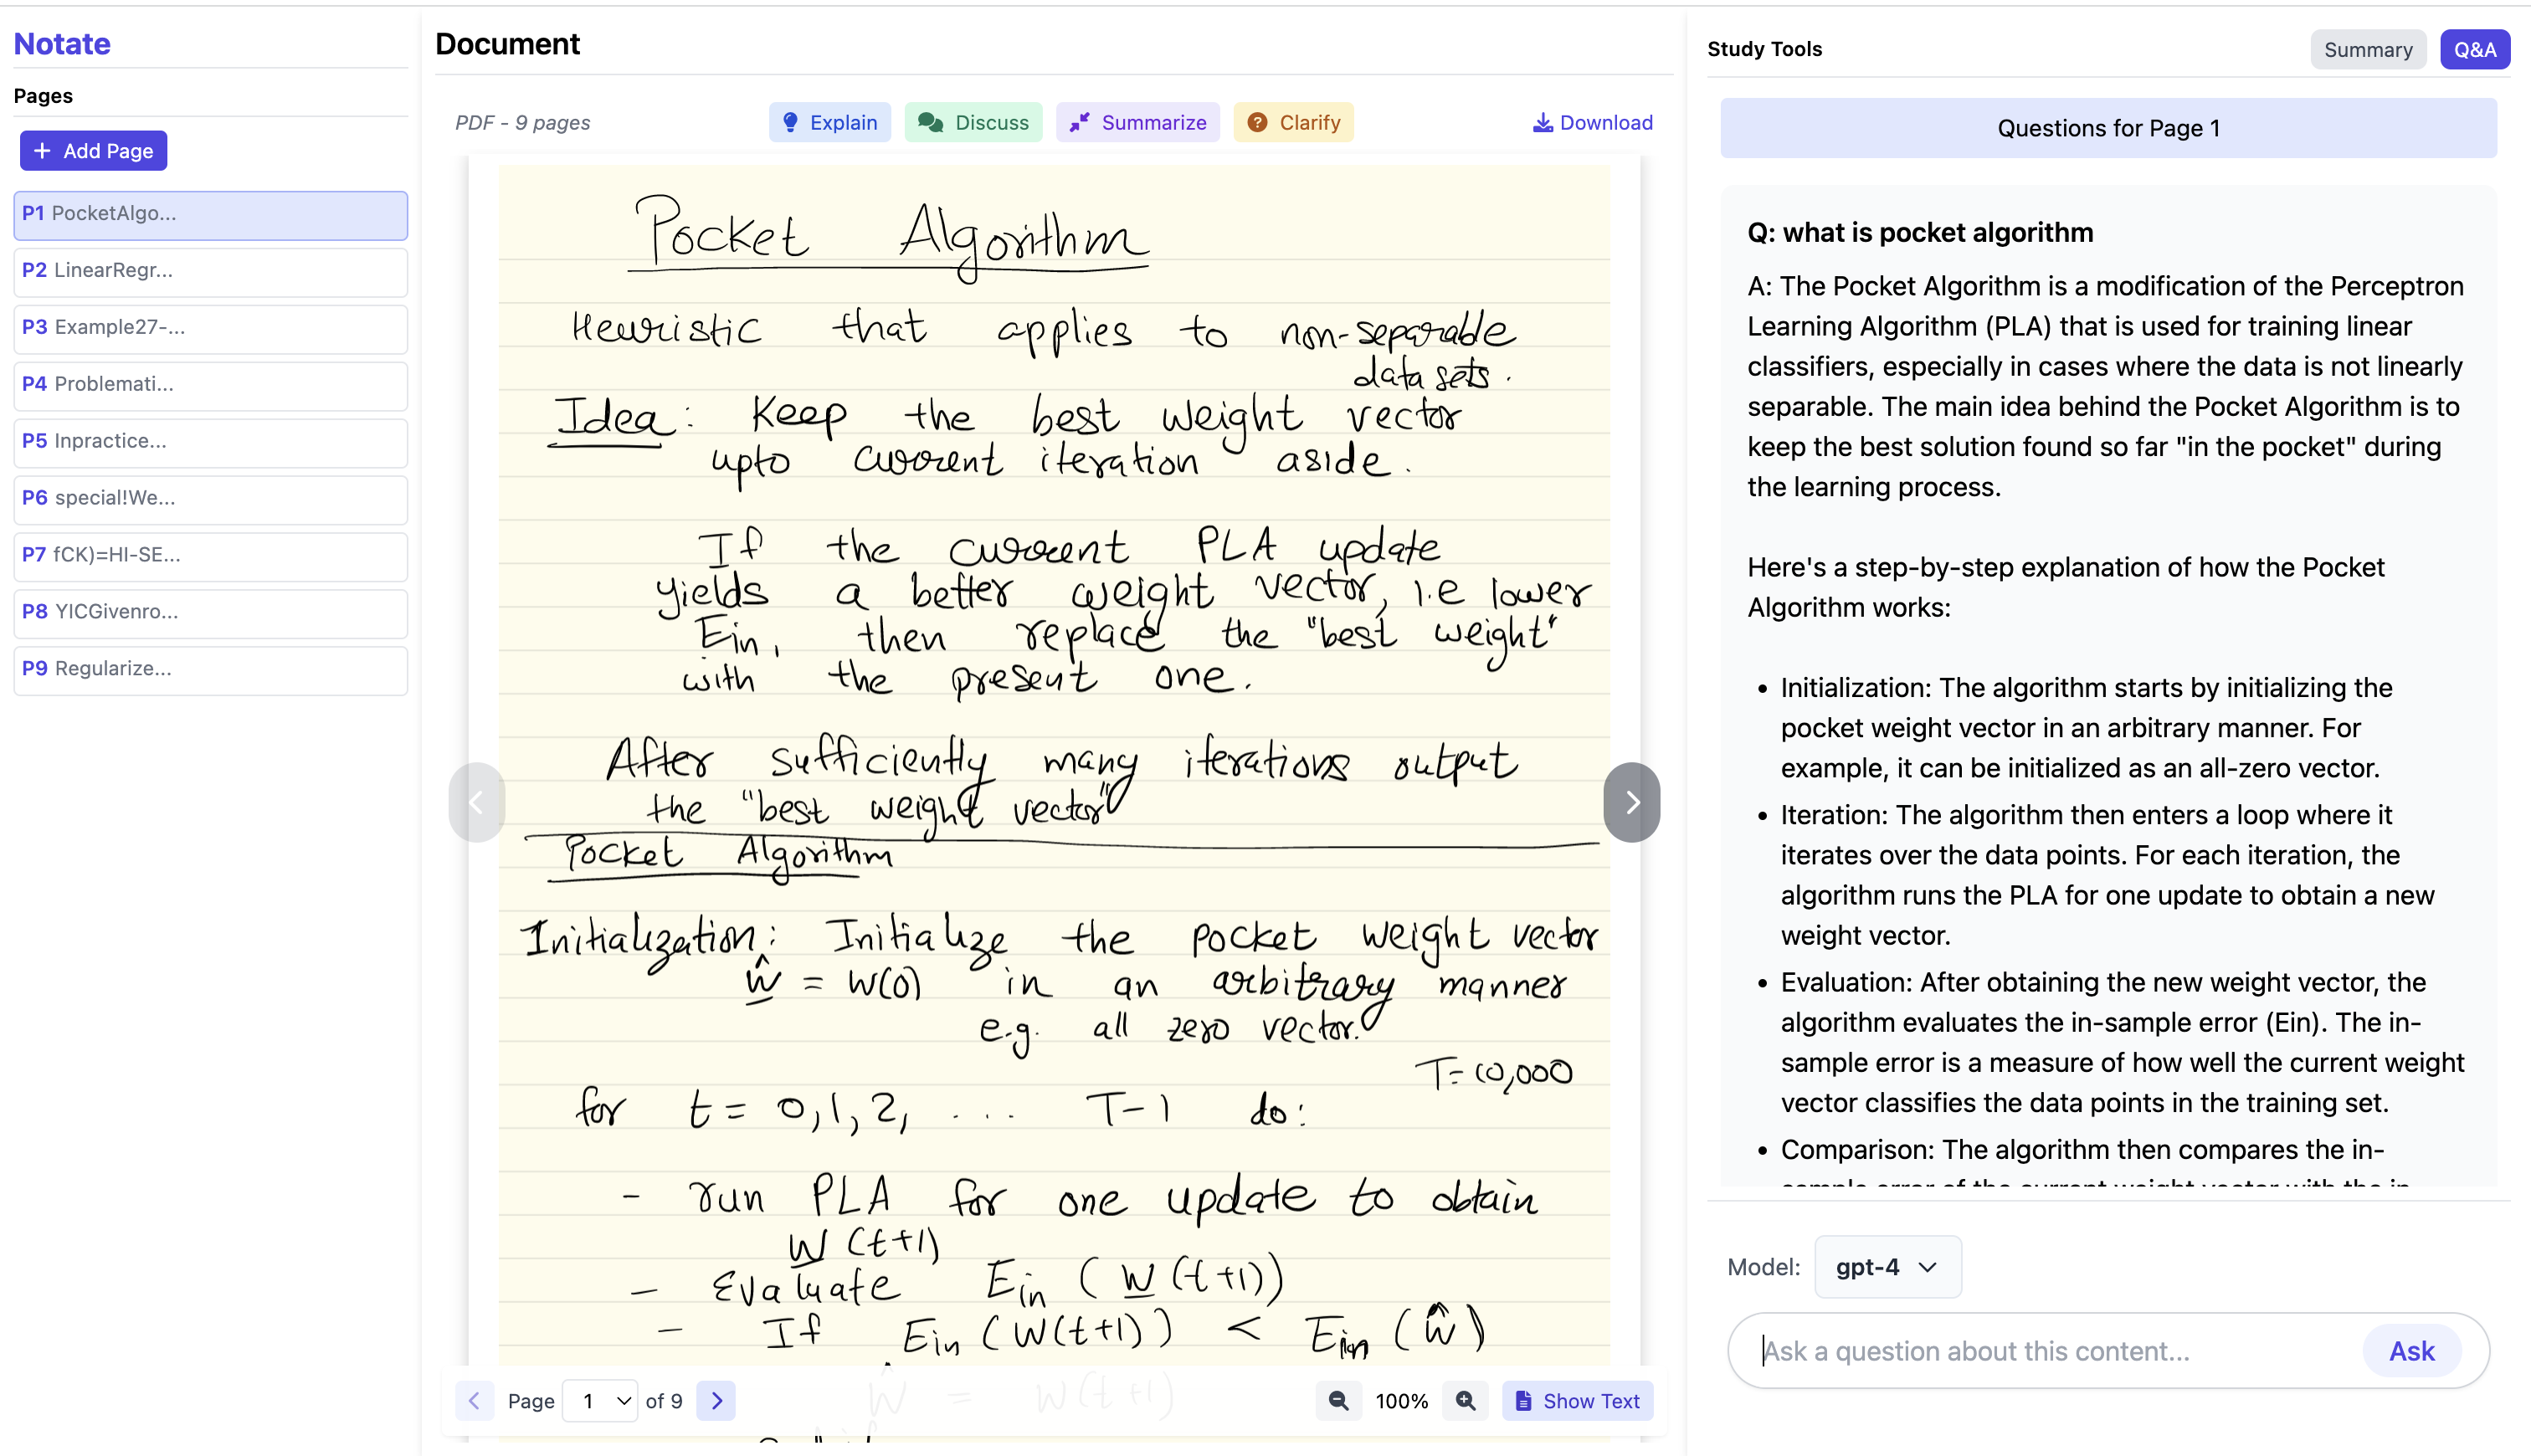 Notate
Pages
+ Add Page
P1 PocketAlgo...
P2 LinearRegr...
P3 Example27-...
P4 Problemati...
P5 Inpractice...
P6 special!We...
P7 fCK)=HI-SE...
P8 YICGivenro...
P9 Regularize...
Document
PDF - 9 pages
Explain
Discuss
Summarize
Clarify
Download
Pocket Algorithm
Heuristic that applies to non-separable
data sets.
Idea: Keep the best weight vector
upto current iteration aside.
If the current PLA update
yields a better weight vector, i.e lower
Ein, then replace the "best weight"
with the present one.
After sufficiently many iterations output
the "best weight vector"
Pocket Algorithm
Initialization: Initialize the pocket weight vector
ŵ = w(0) in an arbitrary manner
e.g. all zero vector.
T=10,000
for t = 0,1,2, .... T-1 do:
- run PLA for one update to obtain
w(t+1)
- Evaluate Ein (w(t+1))
- If Ein (w(t+1)) < Ein (ŵ)
ŵ = w(t+1)
Page 1 of 9
100%
Show Text
Study Tools
Summary
Q&A
Questions for Page 1
Q: what is pocket algorithm
A: The Pocket Algorithm is a modification of the Perceptron
Learning Algorithm (PLA) that is used for training linear
classifiers, especially in cases where the data is not linearly
separable. The main idea behind the Pocket Algorithm is to
keep the best solution found so far "in the pocket" during
the learning process.
Here's a step-by-step explanation of how the Pocket
Algorithm works:
• Initialization: The algorithm starts by initializing the
pocket weight vector in an arbitrary manner. For
example, it can be initialized as an all-zero vector.
• Iteration: The algorithm then enters a loop where it
iterates over the data points. For each iteration, the
algorithm runs the PLA for one update to obtain a new
weight vector.
• Evaluation: After obtaining the new weight vector, the
algorithm evaluates the in-sample error (Ein). The in-
sample error is a measure of how well the current weight
vector classifies the data points in the training set.
• Comparison: The algorithm then compares the in-
sample error of the current weight vector with the in-
Model: gpt-4
Ask a question about this content...
Ask